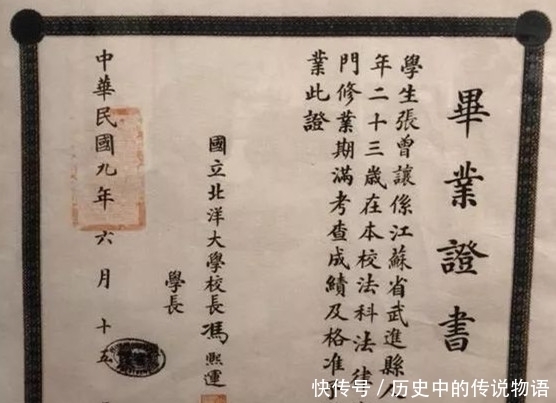 畢業證書
學生張曾讓係江蘇省武進縣人
年二十三歲在本校法科法律
門修業期滿考查成績及格准予
業此證
國立北洋大學校長馮熙運
學長
中華民國九年六月十五
快传号/历史中的传说物语